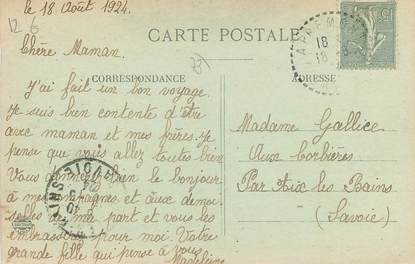 le 18 Août 1924.
12 6
Chère Maman.
CARTE POSTALE
CORRESPONDANCE
ADRESSE
J'ai fait un bon voyage
Je suis bien contente d'être
avec maman et mes frères. Je
pense que vous allez toutes bien
Vous donnerez bien le bonjour
à mes compagnes et aux demoi
selles de ma part et vous les
embrasserez pour moi. Votre
grande fille qui pense à vous
Madeleine
Madame Gallice
Aux Corbières
Par Aix les Bains
(Savoie)
18
18
15